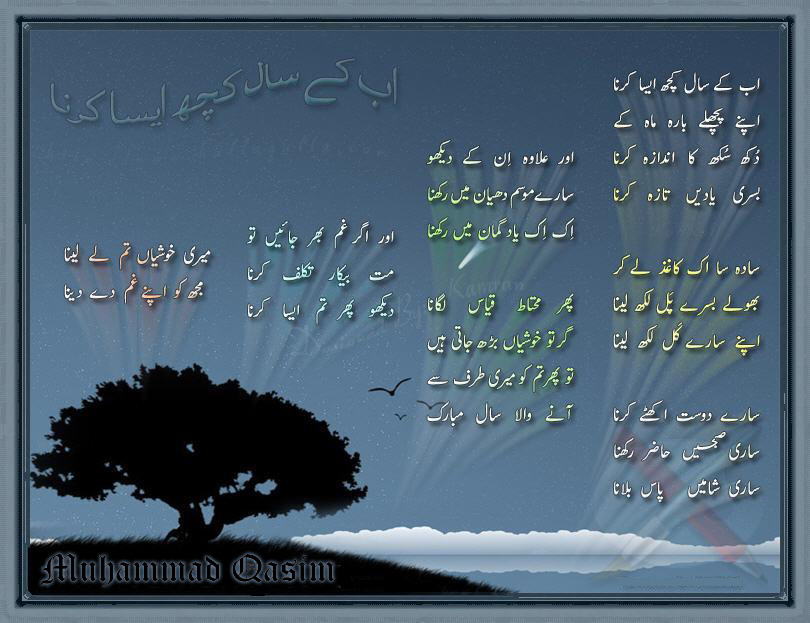 اب کے سال کچھ ایسا کرنا
اب کے سال کچھ ایسا کرنا
اپنے پچھلے بارہ ماہ کے
دُکھ سُکھ کا اندازہ کرنا
بسری یادیں تازہ کرنا
سادہ سا اک کاغذ لے کر
بھولے بسرے پَل لکھ لینا
اپنے سارے کَل لکھ لینا
سارے دوست اکھٹے کرنا
ساری صبحیں حاضر رکھنا
ساری شامیں پاس بلانا
اور علاوہ اِن کے دیکھو
سارے موسم دھیان میں رکھنا
اِک اِک یاد گمان میں رکھنا
پھر محتاط قیاس لگانا
گر تو خوشیاں بڑھ جاتی ہیں
تو پھر تم کو میری طرف سے
آنے والا سال مبارک
اور اگر غم بھر جائیں تو
مت بیکار تکلف کرنا
دیکھو پھر تم ایسا کرنا
میری خوشیاں تم لے لینا
مجھ کو اپنے غم دے دینا
Muhammad Qasim